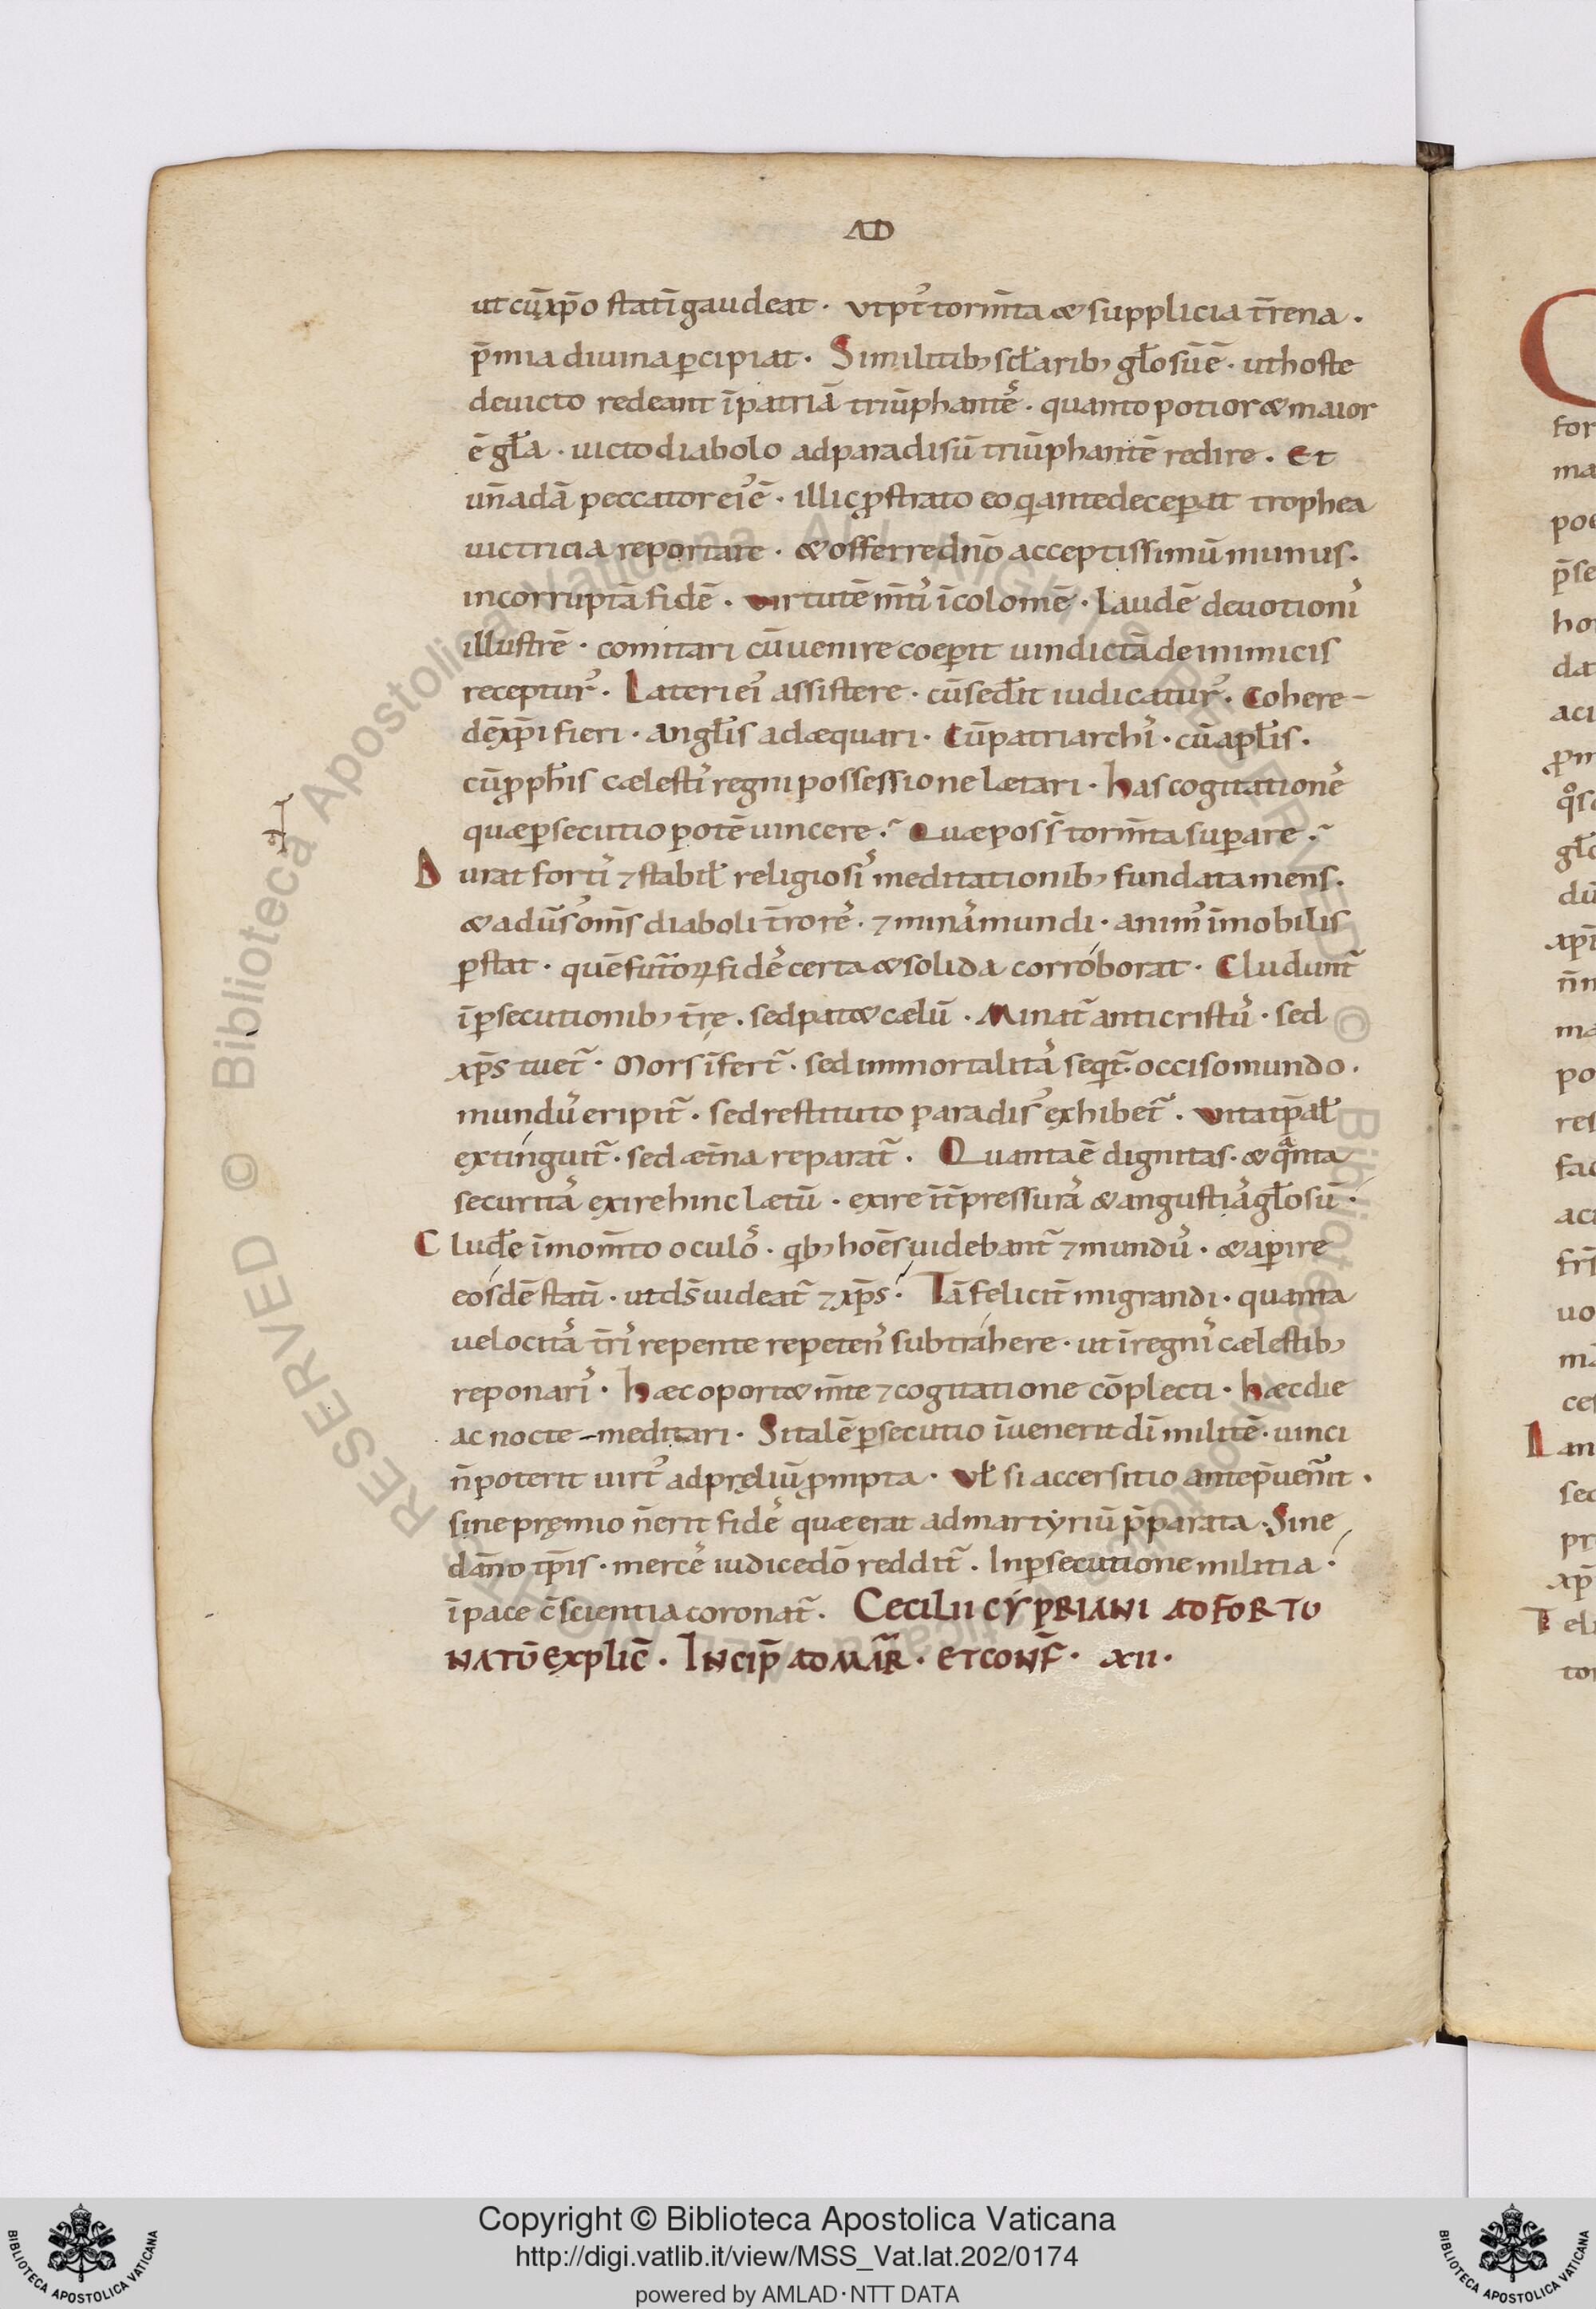 AD
ut cū xp̄o statī gaudeat · ut pꝰt torm̄ta & supplicia t̄rena ·
p̄mia diuina ꝑcipiat · Si militibꝫ scł̄aribꝫ gł̄osū ē · ut hoste
deuicto redeant ī patriā triūphantēs · quanto potior & maior
ē gł̄a · uicto diabolo ad paradisū triūphantē redire · Et
un̄ adā peccator eiꝰ ē · illic ꝓstrato eo qi ante deceꝑat trophea
uictricia reportare · & offerre dn̄o acceptissimū munus ·
incorruptā fidē · uirtutē m̄tis īcolomē · laudē deuotionis
illustrē · comitari cū uenire coeꝑit uindictā de inimicis
recepturꝰ · Lateri eiꝰ assistere · cū sedꝰit iudicaturꝰ · Cohere-
dē xp̄i fieri · angł̄is adæquari · Cū patriarchis · cū apł̄is ·
cū ꝓph̄is cælestis regni possessione lætari · has cogitationes
quæ ꝑsecutio potē uincere · Quæ poss̄ torm̄ta suꝑare ·
Durat fortis ⁊ stabił religiosis meditationibꝫ fundata mens ·
& adus̄ꝰ om̄s diaboli t̄rores · ⁊ minas mundi · animꝰ īmobilis
ꝑstat · quē futꝰoꝝ fides certa & solida corroborat · Cludunt̄
ī ꝑsecutionibꝫ t̄rę · sed pat& cælū · Minat̄ anticristus · sed
xp̄s tuet̄ · Mors īfert̄ · sed immortalitas seqt̄ · occiso mundo ·
mundus eripit̄ · sed restituto paradisꝰ exhibet̄ · Uita tp̄ał
extinguit̄ · sed æt̄na reparat̄ · Quanta ē dignitas · & qᵃnta
securitas exire hinc lætū · exire īt̄ pressuras & angustias gł̄osū ·
Cludꝰe ī mom̄to oculos · qibꝫ hoēs uidebant̄ ⁊ mundus · & aꝑire
eosdē statī · ut ds̄ uideat̄ ⁊ xp̄s · Tā felicit̄ migrandi · quanta
uelocitas t̄ris repente repeteris subtrahere · ut ī regnis cælestibꝫ
reponaris · hæc oport& m̄te ⁊ cogitatione cōplecti · hæc die
ac nocte meditari · Si talē ꝑsecutio īuenerit dī militē · uinci
n̄ poterit uirtꝰ ad pręliū ꝓmpta · Vł si accersitio ante p̄uen̄it ·
sine pręmio n̄ erit fides quæ erat ad martyriū p̄parata · Sine
dāno tp̄is · merces iudice dō reddit̄ · In ꝑsecutione militia ·
ī pace c̄scientia coronat̄ · CECILII CYPRIANI AD FORTU
NATŪ EXPLIC̄ · INCIP̄ AD MAR̄ · ET CONF̄ · XII ·
for
ma
poe
p̄se
ho
da
aci
du
po
res
fac
uo
ces
L an
sec
pr
xp̄
T el
tor
Copyright © Biblioteca Apostolica Vaticana
http://digi.vatlib.it/view/MSS_Vat.lat.202/0174
powered by AMLAD·NTT DATA
BIBLIOTECA APOSTOLICA VATICANA
BIBLIOTECA APOSTOLICA VATICANA